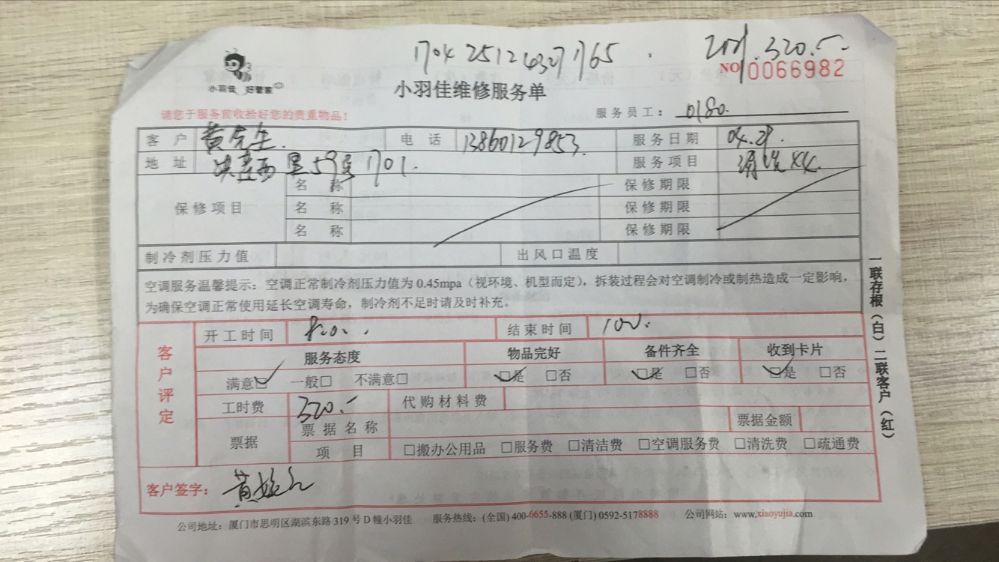 1704 2512 4327 1765
320.-
小羽佳 好管家
NO 0066982
小羽佳维修服务单
请您于服务前收拾好您的贵重物品!
服务员工: 0180.
客户 黄先生. 电话 13860129853. 服务日期 04.29.
地址 西里59号1701. 服务项目 清洗X4.
保修项目 名称 保修期限
名称 保修期限
名称 保修期限
制冷剂压力值 出风口温度
空调服务温馨提示:空调正常制冷剂压力值为 0.45mpa(视环境、机型而定),拆装过程会对空调制冷或制热造成一定影响,
为确保空调正常使用延长空调寿命,制冷剂不足时请及时补充。
一联存根(白)二联客户(红)
客户评定
开工时间 结束时间
服务态度 物品完好 备件齐全 收到卡片
满意☑ 一般□ 不满意□ ☑是 □否 ☑是 □否 ☑是 □否
工时费 320.- 代购材料费
票据 票据名称 票据金额
项目 □搬办公用品 □服务费 □清洁费 □空调服务费 □清洗费 □疏通费
客户签字: 黄
公司地址:厦门市思明区湖滨东路 319 号 D 幢小羽佳 服务热线:(全国) 400-6655-888 (厦门) 0592-5178888 公司网站:www.xiaoyujia.com